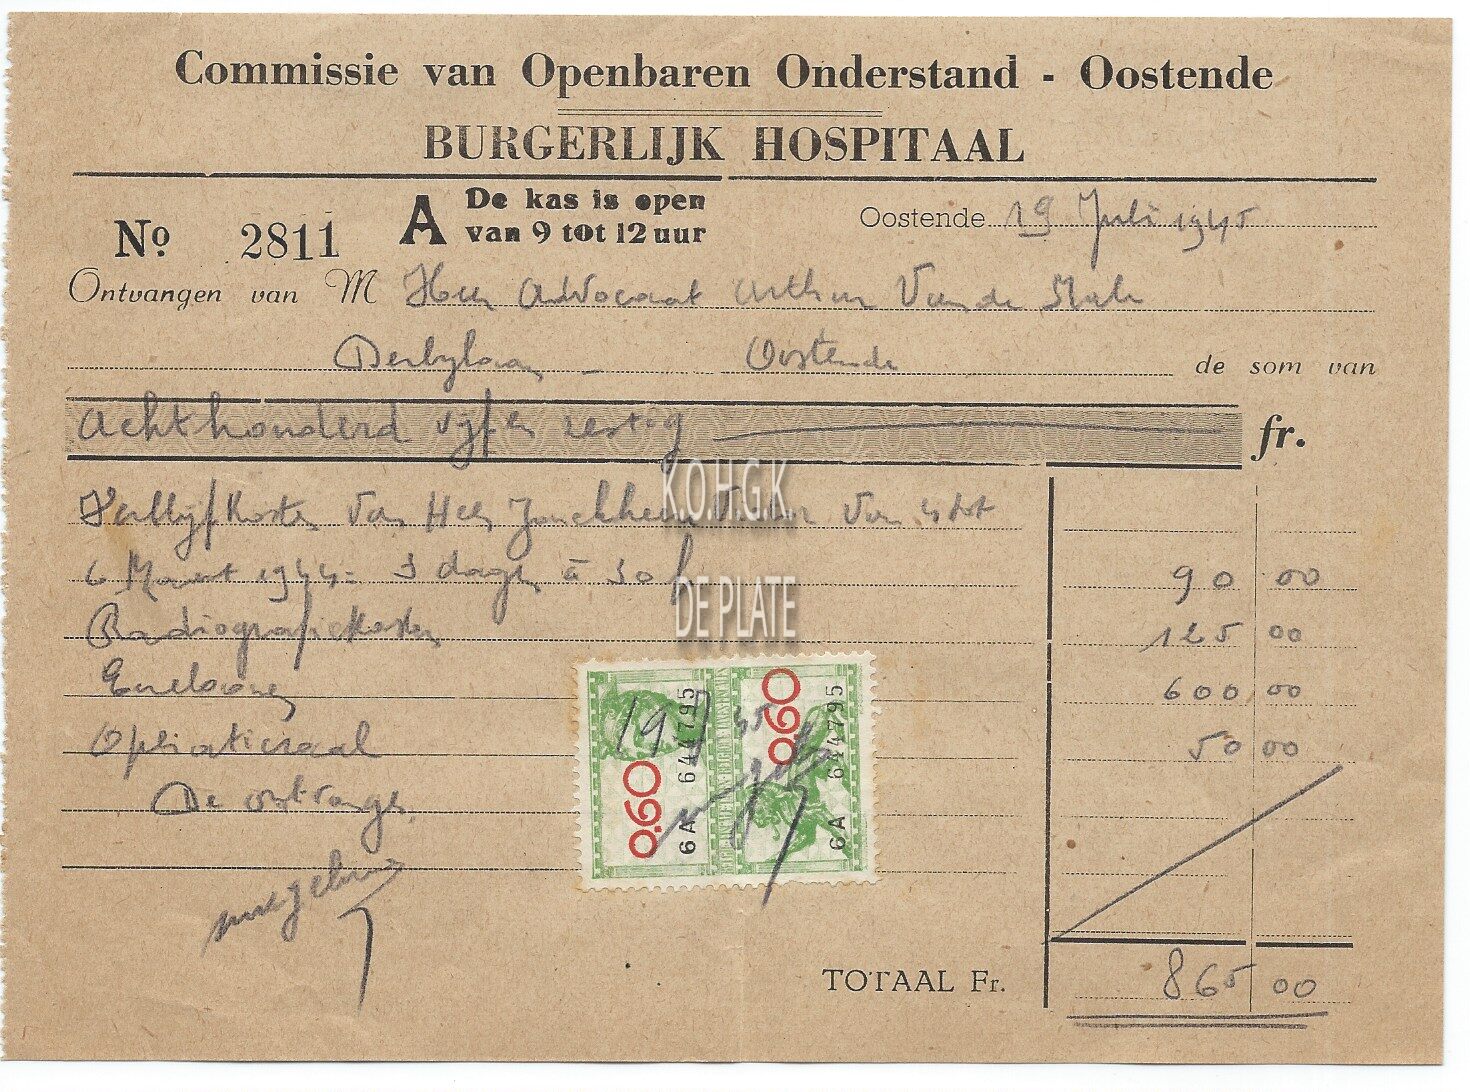 Commissie van Openbaren Onderstand - Oostende
BURGERLIJK HOSPITAAL
No 2811
A De kas is open
van 9 tot 12 uur
Oostende 19 Juli 1945
Ontvangen van M Heer Advocaat Arthur Van de
Derbylaan - Oostende de som van
Achthonderd vijf en zestig fr.
K.O.H.G.K.
Verblijfkosten van Heer van 4 tot
6 Maart 1944 = 3 dagen à 30 f 90 00
DE PLATE
Radiografiekosten 125 00
Ereloonen 600 00
Operatiezaal 50 00
De ontvanger
0.60 6A 644795
0.60 6A 644795
19 7 45
TOTAAL Fr. 865 00